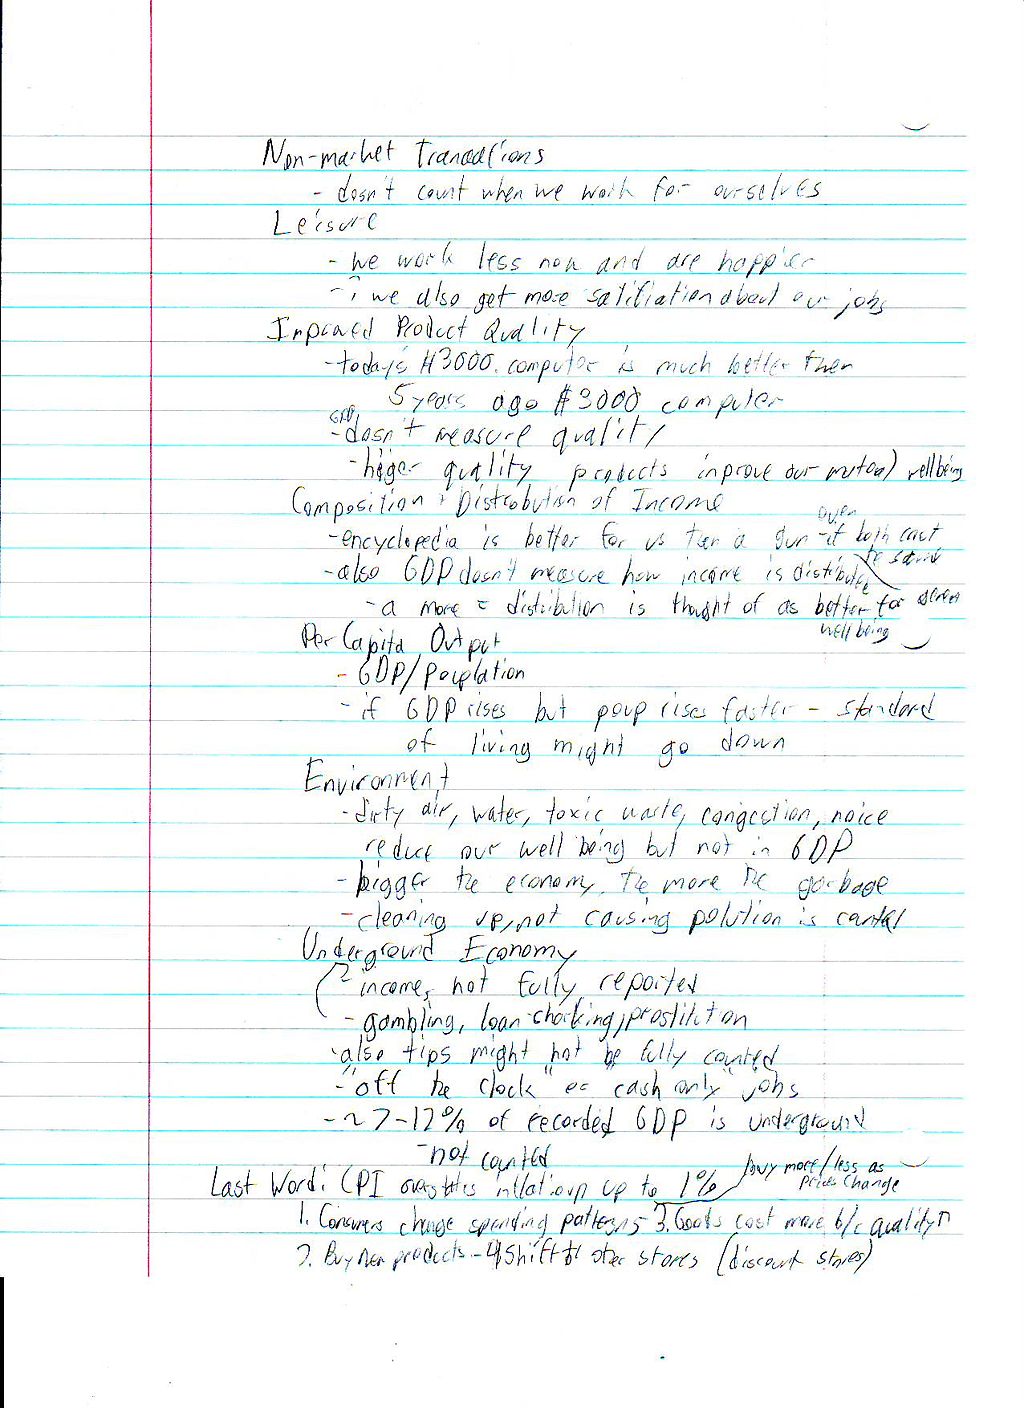 Non-market Trancactions
- dosn't count when we work for ourselves
Leisure
- we work less now and are happier
- we also get more satifiation about our jobs
Improved Product Quality
- today's $3000 computer is much better then
5 years ago $3000 computer
GDP
- dosn't measure quality
- higer quality products inprove our mutual wellbeing
Composition + Distrobution of Income
- encyclopedia is better for us then a gun - even if both cost the same
- also GDP dosn't measure how income is distributed
- a more = distribution is thought of as better for overall well being
Per Capita Output
- GDP/Pouplation
- if GDP rises but poup rises faster - standard
of living might go down
Environment
- dirty air, water, toxic waste, congestion, noice
reduce our well being but not in GDP
- bigger the economy, the more the garbage
- cleaning up, not causing polution is counted
Underground Economy
- income, not fully reported
- gambling, loan-sharking, prostitution
- also tips might not be fully counted
- "off the clock" or "cash only" jobs
- ~7-12% of recorded GDP is underground
- not counted
Last Word: CPI overstates inflation up to 1%
buy more/less as
prices change
1. Consumers change spending patterns - 3. Goods cost more b/c quality ↑
2. Buy new products - 4. Shift to other stores (discount stores)